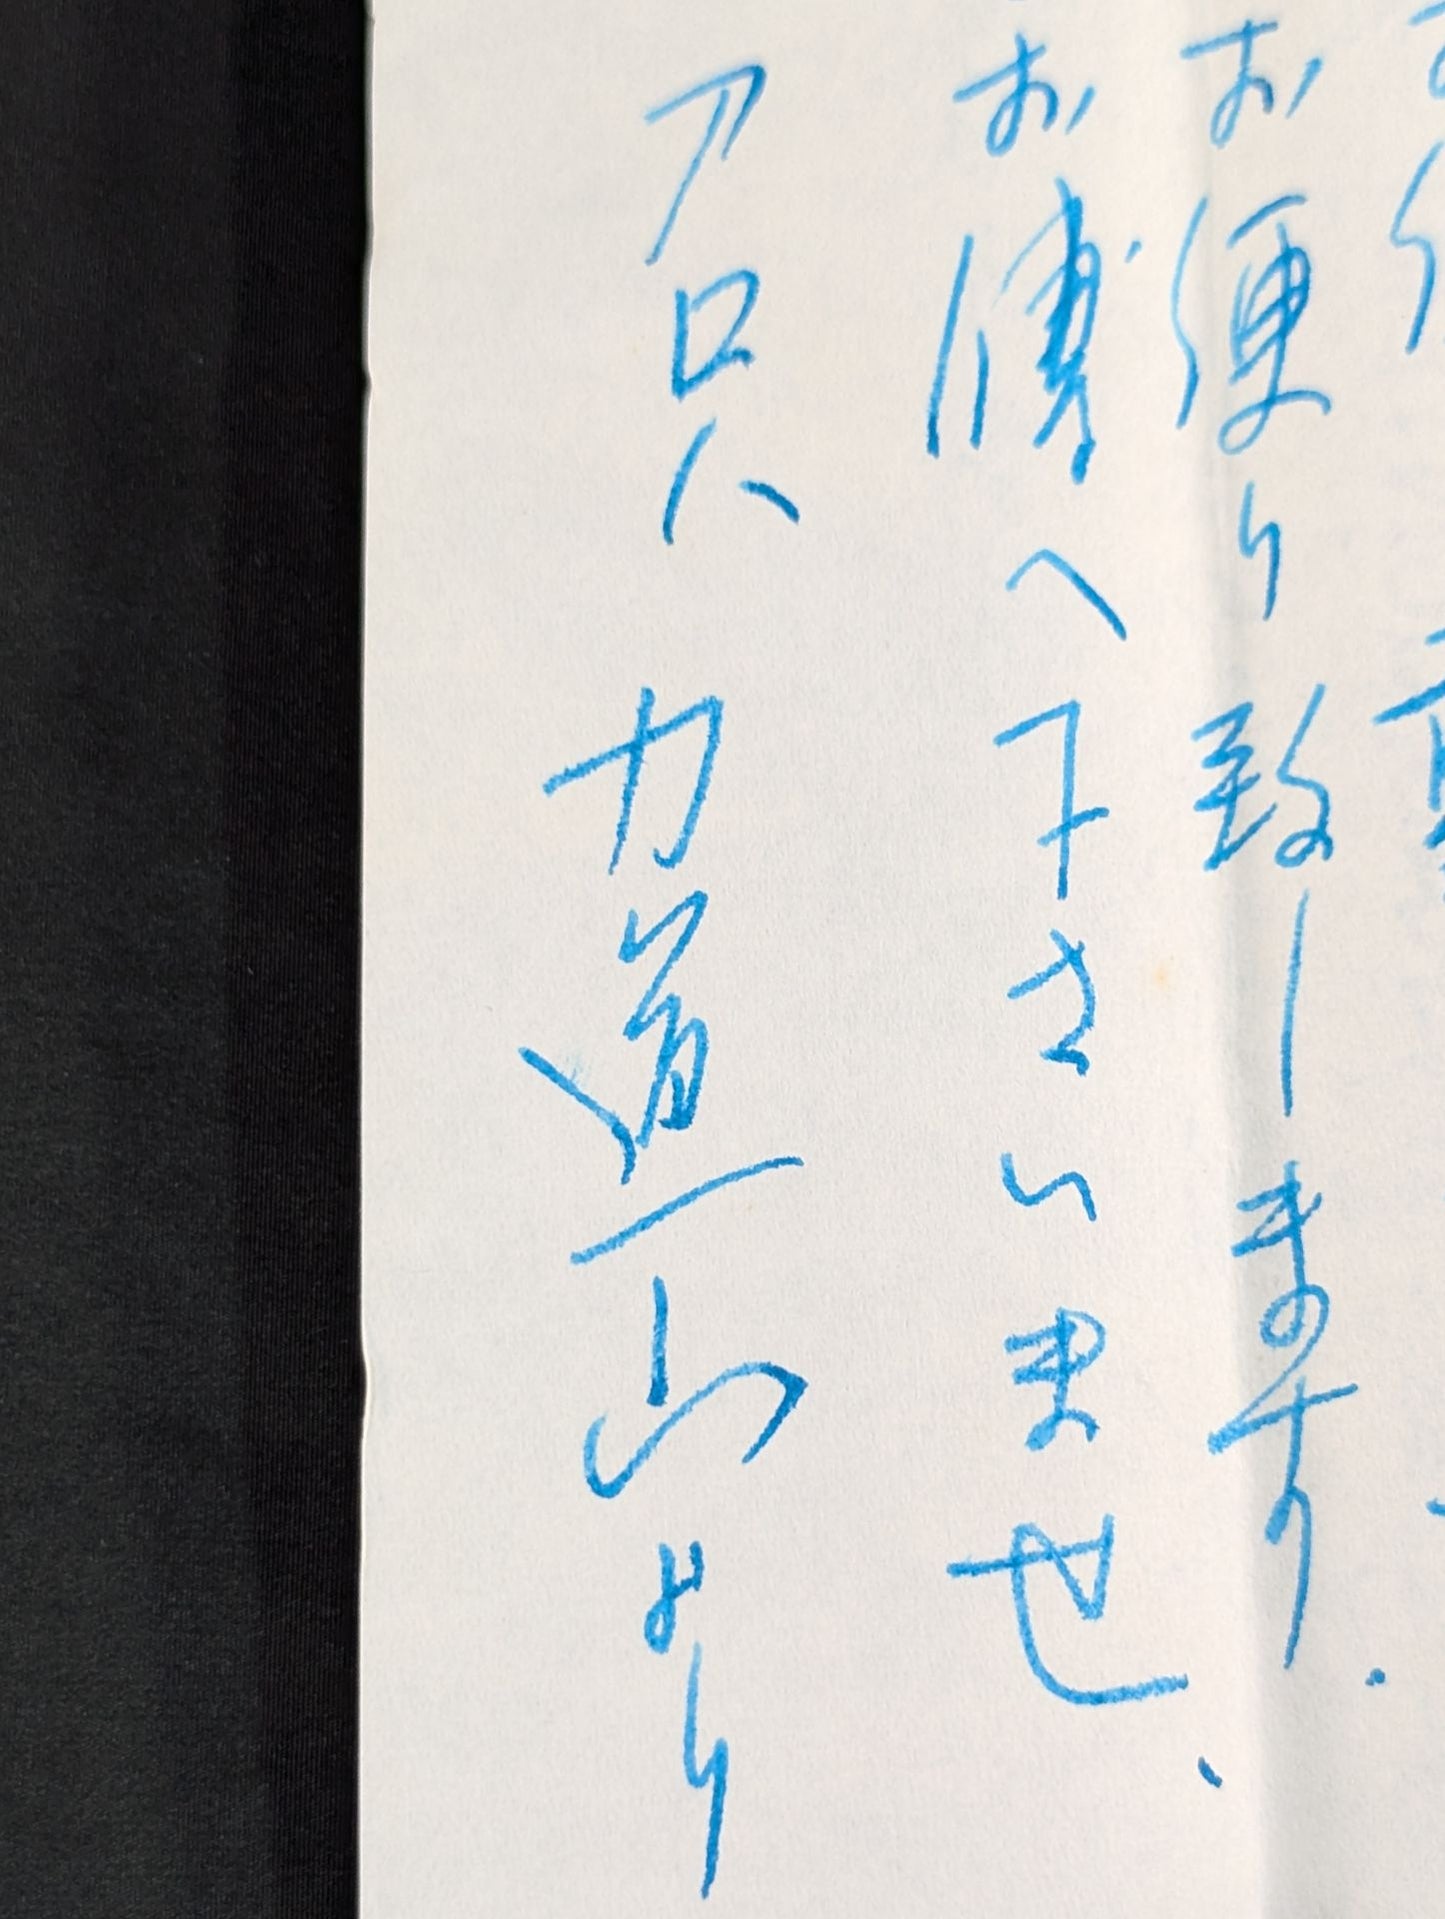 お便り致します.
お傳へ下さいませ、
アロハ 力道山より